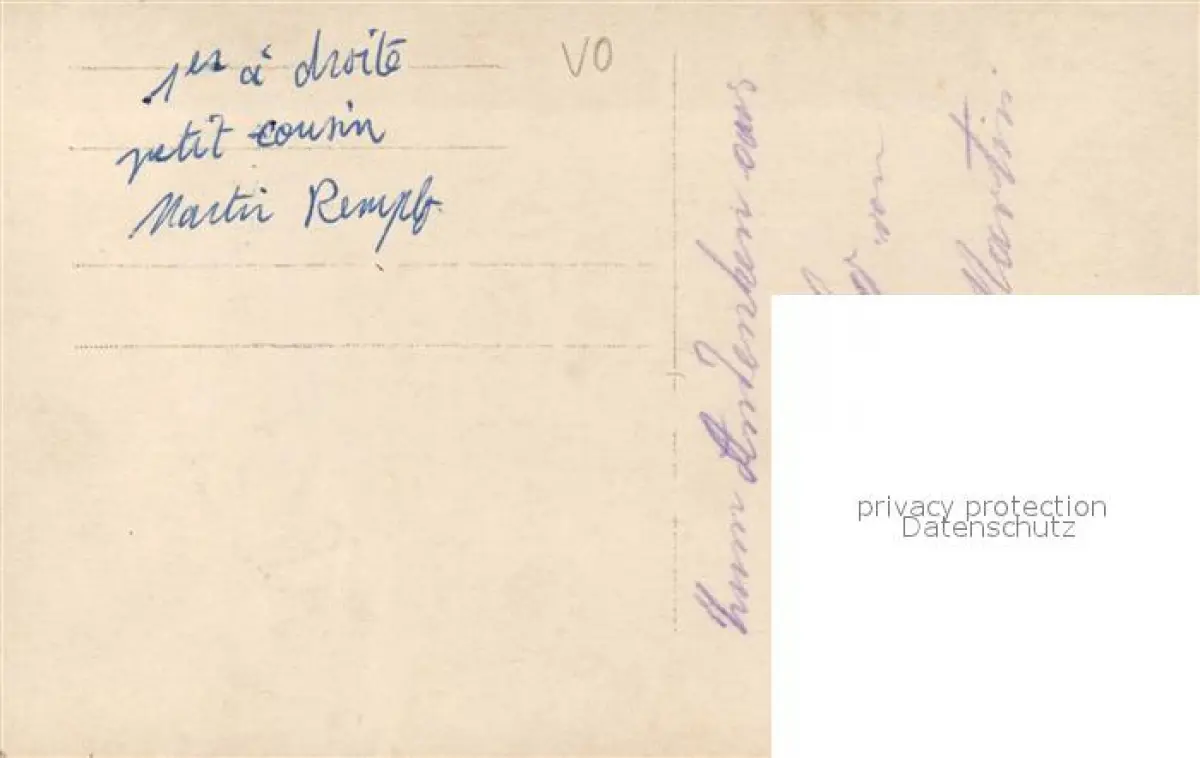 1er à droite
petit cousin
Martin Rempfb
VO
Zum
von
Martin.
privacy protection
Datenschutz